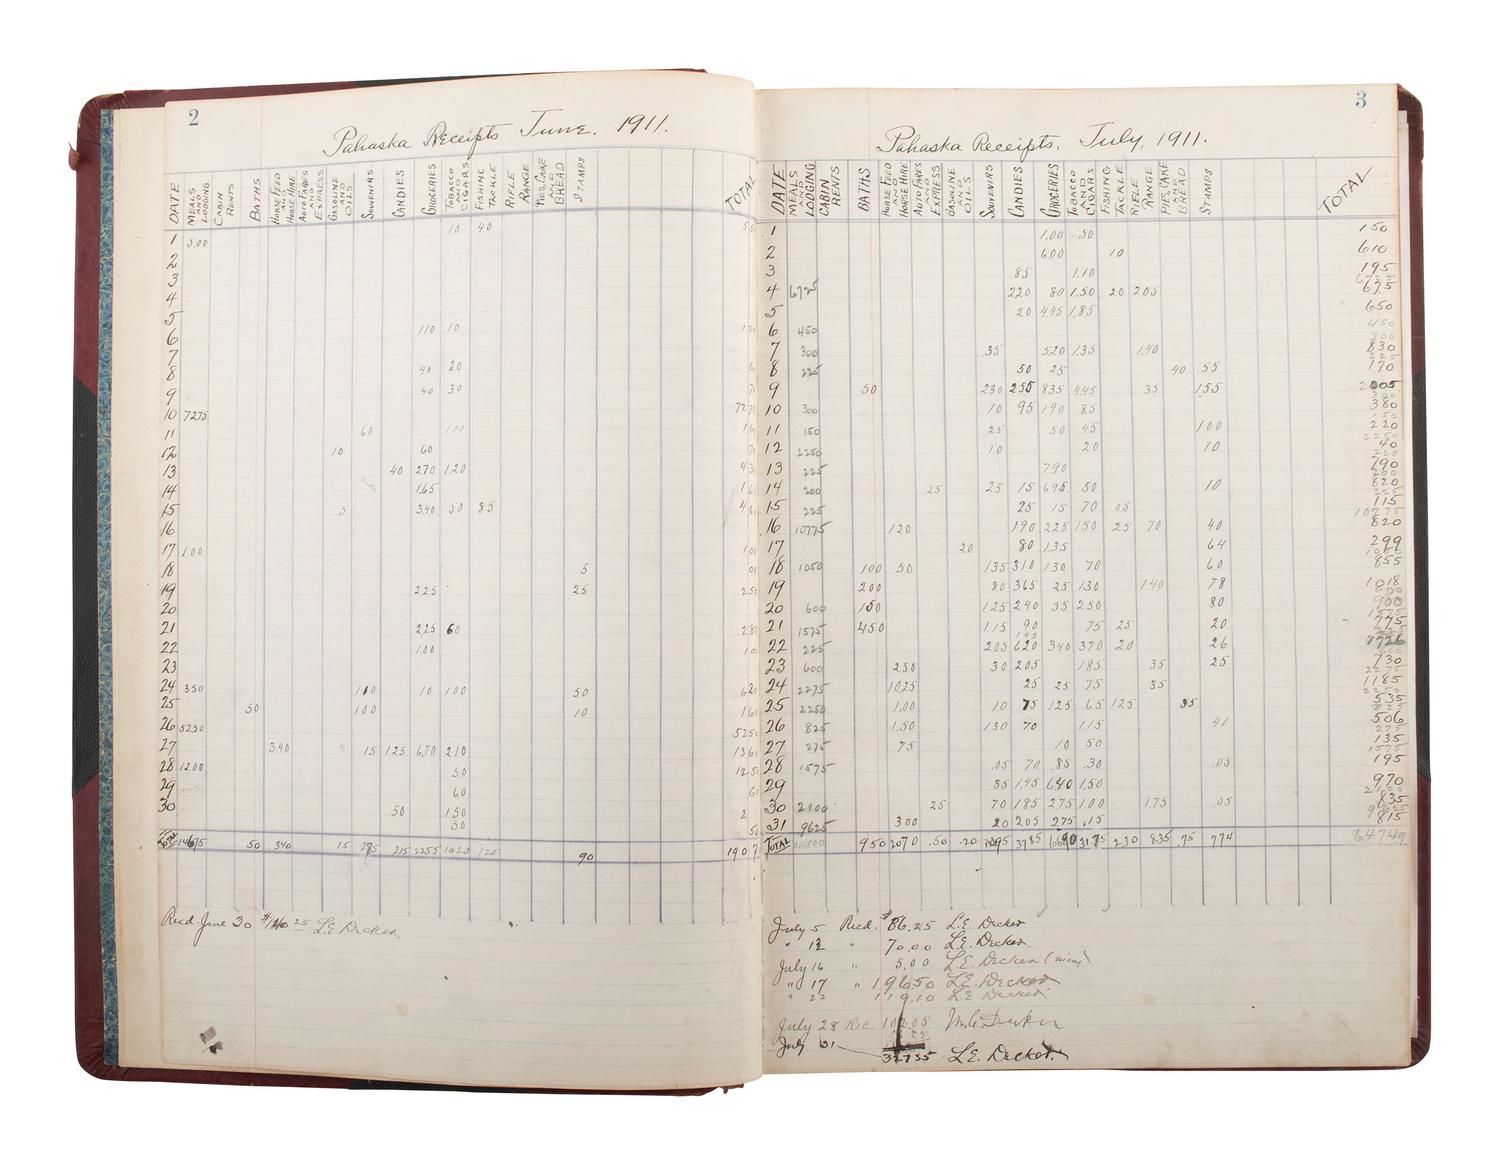 2
Pahaska Receipts June, 1911.
DATE MEALS AND LODGING CABIN RENTS BATHS HORSE FEED AND HORSE HIRE AUTO FARES AND EXPRESS GASOLINE AND OILS SOUVENIRS CANDIES GROCERIES TOBACCO AND CIGARS FISHING TACKLE RIFLE RANGE PIES, CAKE AND BREAD STAMPS TOTAL
1 5.00 10 40
2
3
4
5
6 110 10
7
8 40 20
9 40 30
10 7275
11 60 100
12 10 60
13 40 270 120
14 165
15 5 340 50 85
16
17 100
18 5
19 225 25
20
21 225 60
22 100
23
24 350 110 10 100 50
25 50 100 10
26 5250
27 340 15 125 670 210
28 1200 50
29 60
30 50 150
50
Total 14675 50 340 15 285 215 2255 1020 125 90
Recd. June 30 25 L.E. Decker.
3
Pahaska Receipts, July, 1911.
DATE MEALS AND LODGING CABIN RENTS BATHS HORSE FEED AND HORSE HIRE AUTO FARES AND EXPRESS GASOLINE AND OILS SOUVENIRS CANDIES GROCERIES TOBACCO AND CIGARS FISHING TACKLE RIFLE RANGE PIES, CAKE AND BREAD STAMPS TOTAL
1 1.00 .50 150
2 6.00 10 610
3 .85 1.10 195
4 6725 220 80 1.50 20 205 675
5 20 4.45 1.85 650
6 450 450
7 300 .35 520 1.35 1.40 830
8 225 50 25 40 55 170
9 50 230 255 835 445 35 155 2005
10 300 10 95 190 85 380
11 150 25 50 45 100 220
12 2250 10 20 10 40
13 225 790 790
14 200 25 25 15 695 50 10 820
15 225 25 15 70 05 115
16 10775 120 190 225 150 25 70 40 820
17 20 80 135 64 299
18 1050 100 50 135 310 130 70 60 855
19 200 80 365 25 130 140 78 1018
20 600 150 125 240 35 250 80 900
21 1575 450 115 90 75 25 20 775
22 225 205 620 340 370 20 26 1726
23 600 250 30 205 185 35 25 730
24 2275 10,25 25 25 75 35 1185
25 2250 1.00 10 75 125 65 125 35 535
26 825 1.50 130 70 1.15 41 506
27 275 75 10 50 135
28 1575 .05 70 .85 .30 .05 195
29 35 1.45 640 1.50 970
30 2100 25 70 185 275 100 1.75 .05 835
31 9625 300 20 205 275 .15 815
TOTAL 950 2070 .50 .20 3785 31.75 230 835 .75 774 64749
July 5 Recd. $86.25 L.E. Decker
" 12 " 70.00 L.E. Decker.
July 16 " 5.00 L.E. Decker
" 17 " 196.50 L.E. Decker
" 23 119.10 L.E. Decker.
July 28 Rec. 102.05
July 31 327.35 L.E. Decker.